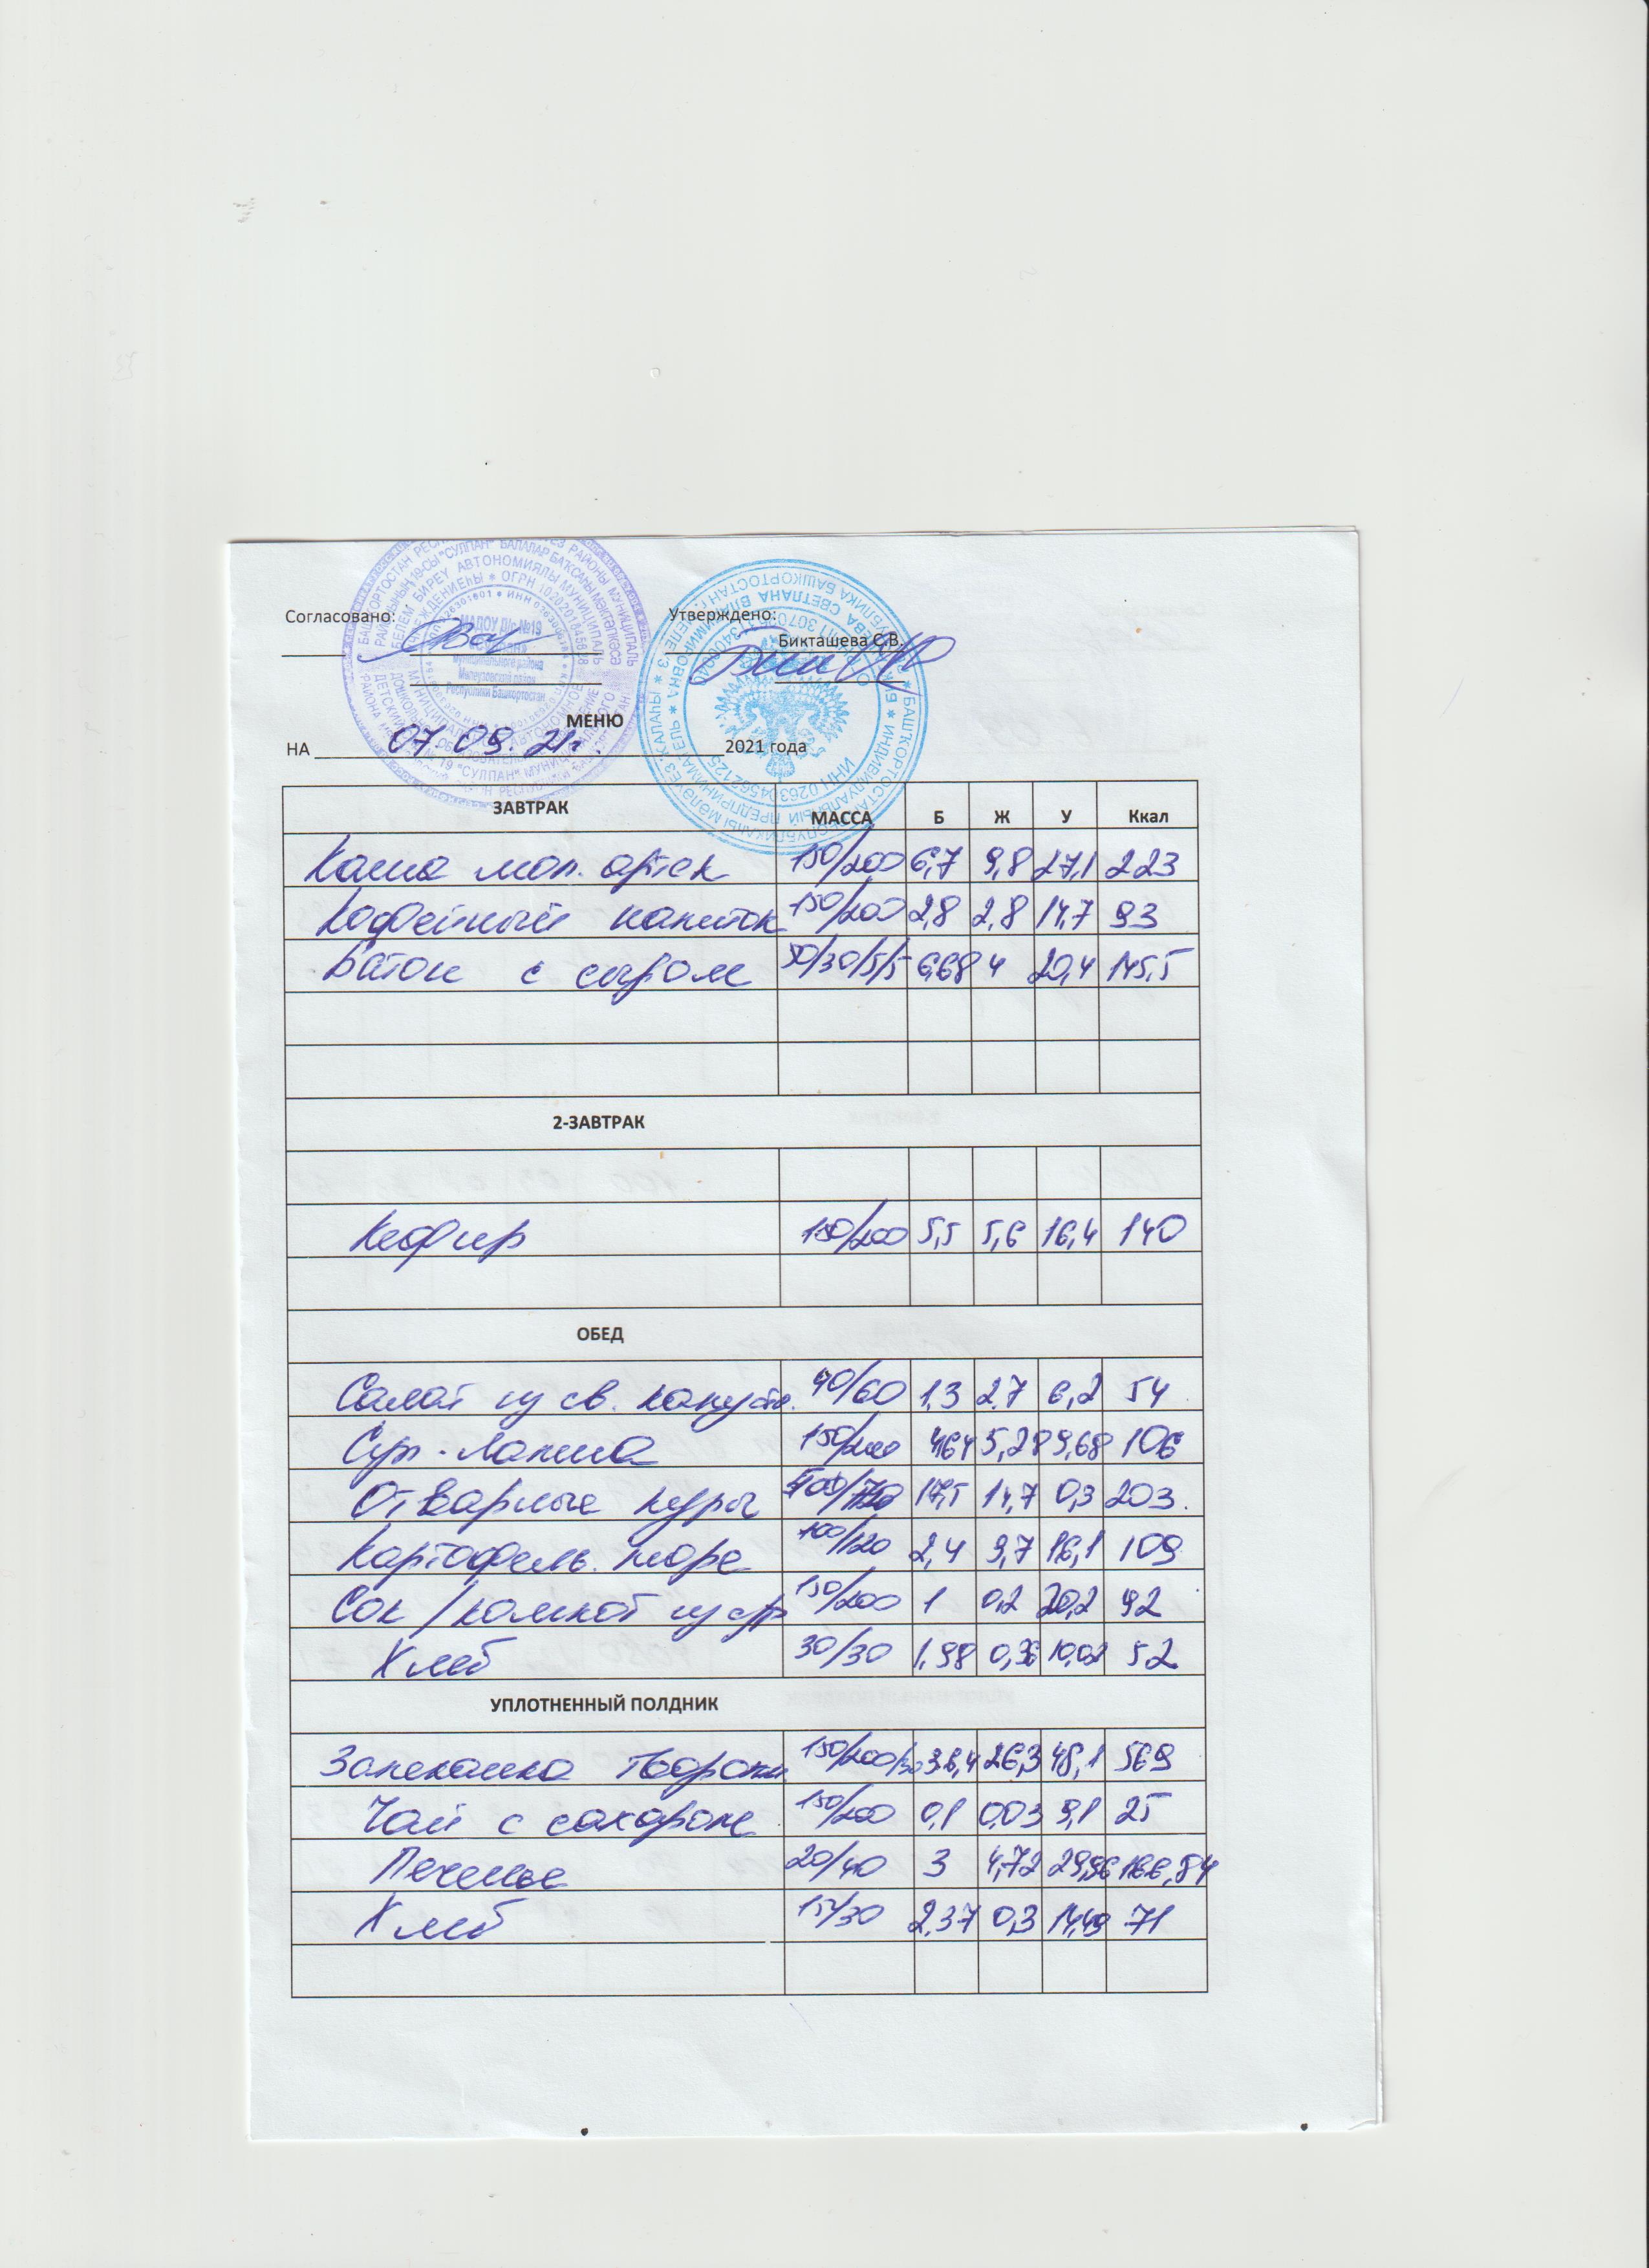 Согласовано:
Утверждено:
Бикташева С.В.
МАДОУ Д/с №19
муниципального района
Мелеузовский район
Республики Башкортостан
МЕНЮ
НА 07.09.21г. 2021 года
ЗАВТРАК МАССА Б Ж У Ккал
Каша мол. артек 150/200 6,7 9,8 27,1 223
Кофейный напиток 150/200 2,8 2,8 14,7 93
Батон с сыром 50/30/5/5 6,68 4 20,4 145,5
2-ЗАВТРАК
Кефир 150/200 5,5 5,6 16,4 140
ОБЕД
Салат из св. капусты. 40/60 1,3 2,7 6,2 54
Суп-лапша 150/200 4,64 5,28 9,68 106
Отварные куры 17,5 14,7 0,3 203.
Картофель. пюре 100/120 2,4 9,7 16,1 109
Сок/компот из с/ф 150/200 1 0,2 20,2 92
Хлеб 30/30 1,98 0,36 10,02 52
УПЛОТНЕННЫЙ ПОЛДНИК
Запеканка творожн. 150/200/30 36,4 26,3 48,1 569
Чай с сахаром 150/200 0,1 0,03 9,1 25
Печенье 20/40 3 4,72 29,96 166,84
Хлеб 15/30 2,37 0,3 14,49 71